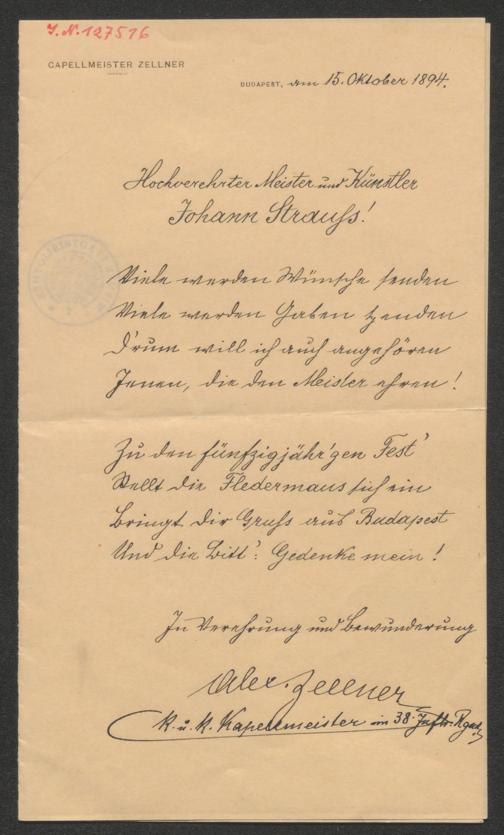 J.N. 127516
CAPELLMEISTER ZELLNER
BUDAPEST, am 15. Oktober 1894.
Hochverehrter Meister und Künstler
Johann Strauss!
Viele werden Wünsche senden
Viele werden Gaben spenden
D'rum will ich auch angehören
Jenen, die den Meister ehren!
Zu den fünfzigjähr'gen Fest'
Stellt die Fledermaus sich ein
Bringt dir Gruss aus Budapest
Und die Bitt': Gedenke mein!
In Verehrung und Bewunderung
Alex. Zellner
K. u. k. Kapellmeister im 38. Inftr. Rgmt.